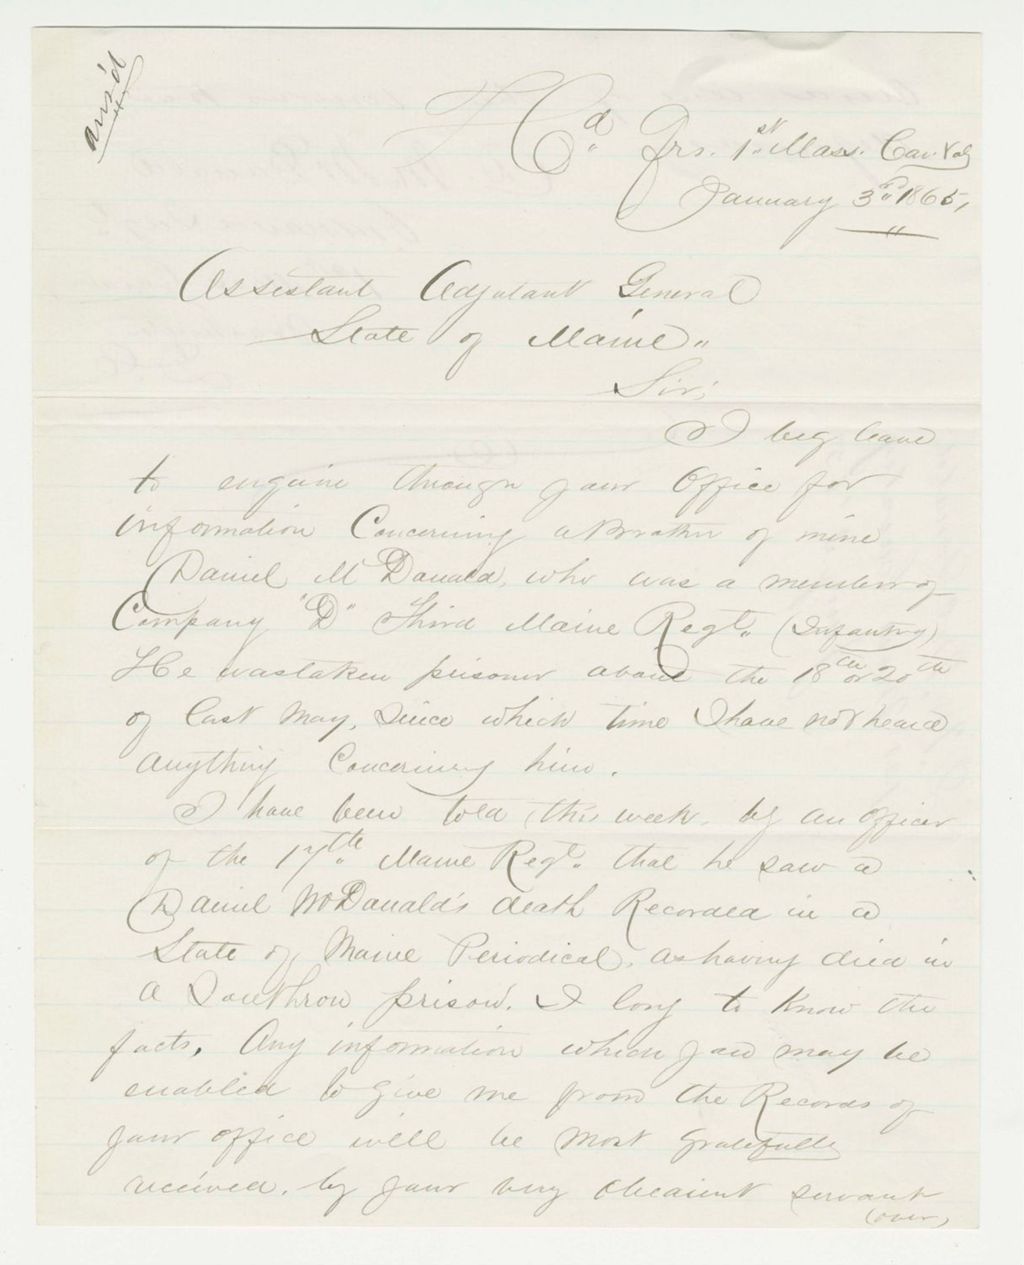 ans'd
Hd Qrs. 1st Mass. Cav. Vol
January 3rd 1865,
Assistant Adjutant General
State of Maine"
Sir;
I beg leave
to enquire through your Office for
information Concerning a Brother of mine
Daniel McDonald, who was a member of
Company "D" Third Maine Regt. (Infantry)
He was taken prisoner about the 18th or 20th
of last May, Since which time I have not heard
anything Concerning him.
I have been told this week, by an Officer
of the 17th Maine Regt. that he saw a
Daniel McDonald's death Recorded in a
State of Maine Periodical, as having died in
a Southron prison. I long to Know the
facts. Any information which you may be
enabled to give me from the Records of
your office will be most gratefully
received, by your very obedient servant
(over)